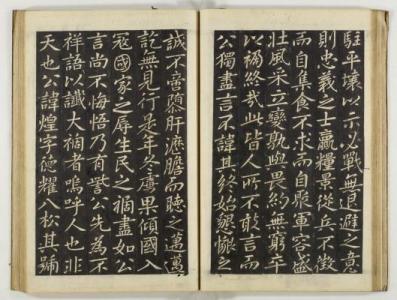 駐平壤以示必戰無退避之意
則忠義之士贏糧景從兵不徵
而自集食不求而自聚軍容盛
壯風采立變孰與畏約無窮卒
以禍終哉此皆人所不敢言而
公獨盡言不諱其終始懇懷之
誠不啻隳肝瀝膽而聽之邁邁
訖無見行是年冬虜果傾國入
冦國家之辱生民之禍盡如公
言尚不悔悟乃有斁公先為不
祥語以讖大禍者嗚呼人也非
天也公諱煌字德耀八松其號